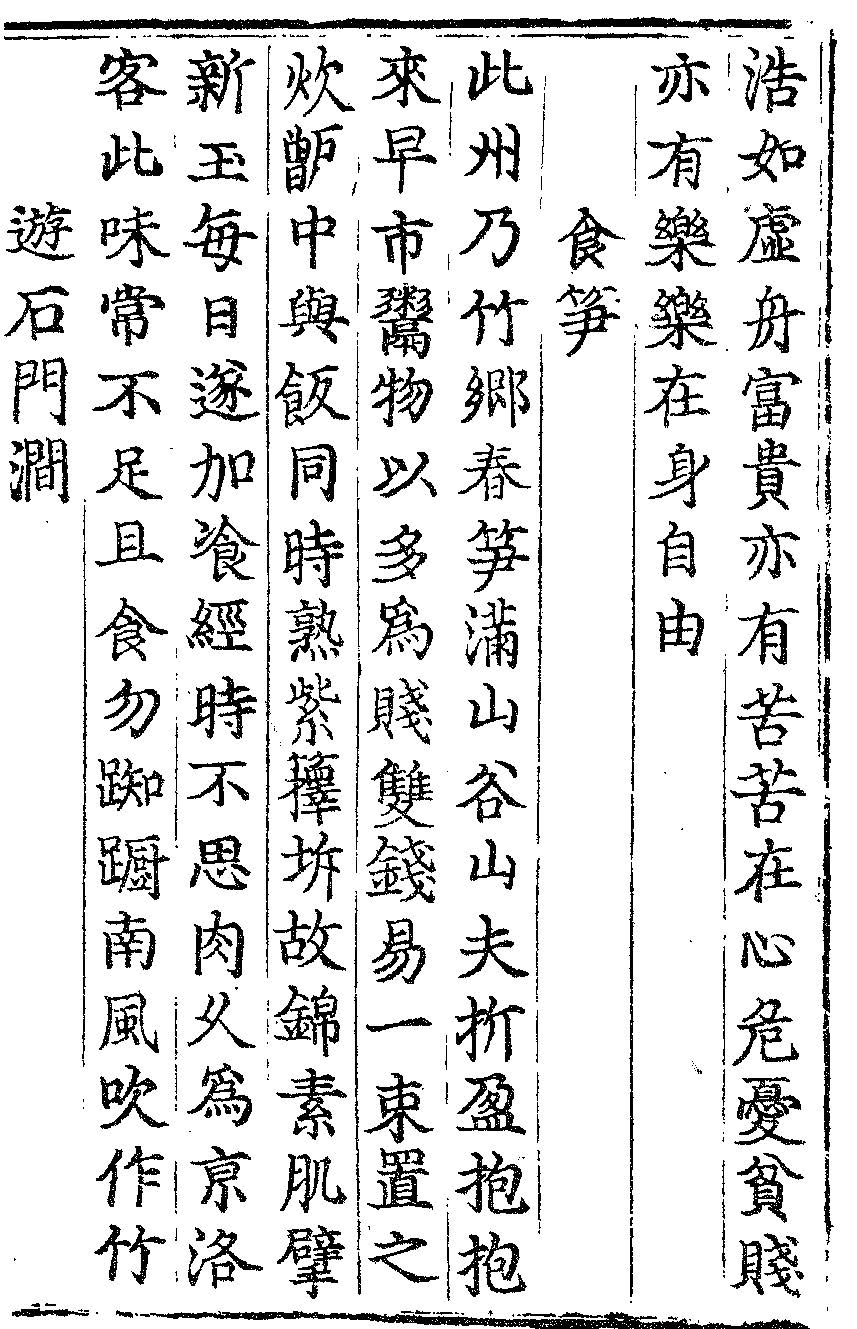 浩如虛舟富貴亦有苦苦在心危憂貧賤
亦有樂樂在身自由
食笋
此州乃竹鄉春笋滿山谷山夫折盈抱抱
來早市鬻物以多爲賤雙錢易一束置之
炊甑中與飯同時熟紫籜坼故錦素肌擘
新玉每日遂加飡經時不思肉乆爲亰洛
客此味常不足且食勿踟蹰南風吹作竹
遊石門澗